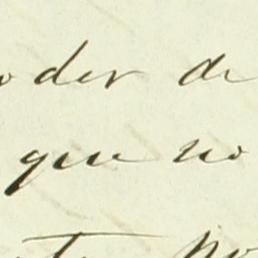 oder de
que no